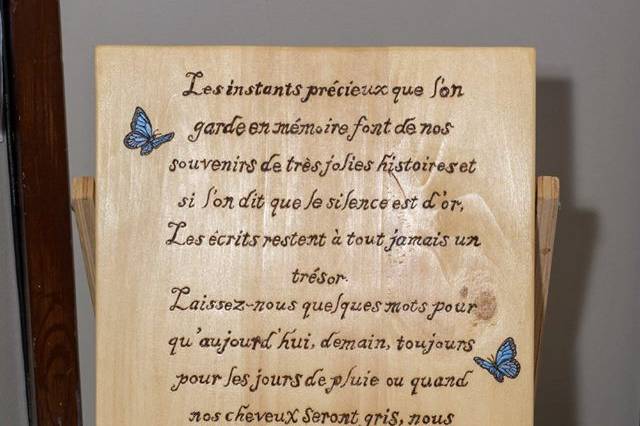 Les instants précieux que l'on
garde en mémoire font de nos
souvenirs de très jolies histoires et
si l'on dit que le silence est d'or,
Les écrits restent à tout jamais un
trésor.
Laissez-nous quelques mots pour
qu'aujourd'hui, demain, toujours
pour les jours de pluie ou quand
nos cheveux seront gris, nous